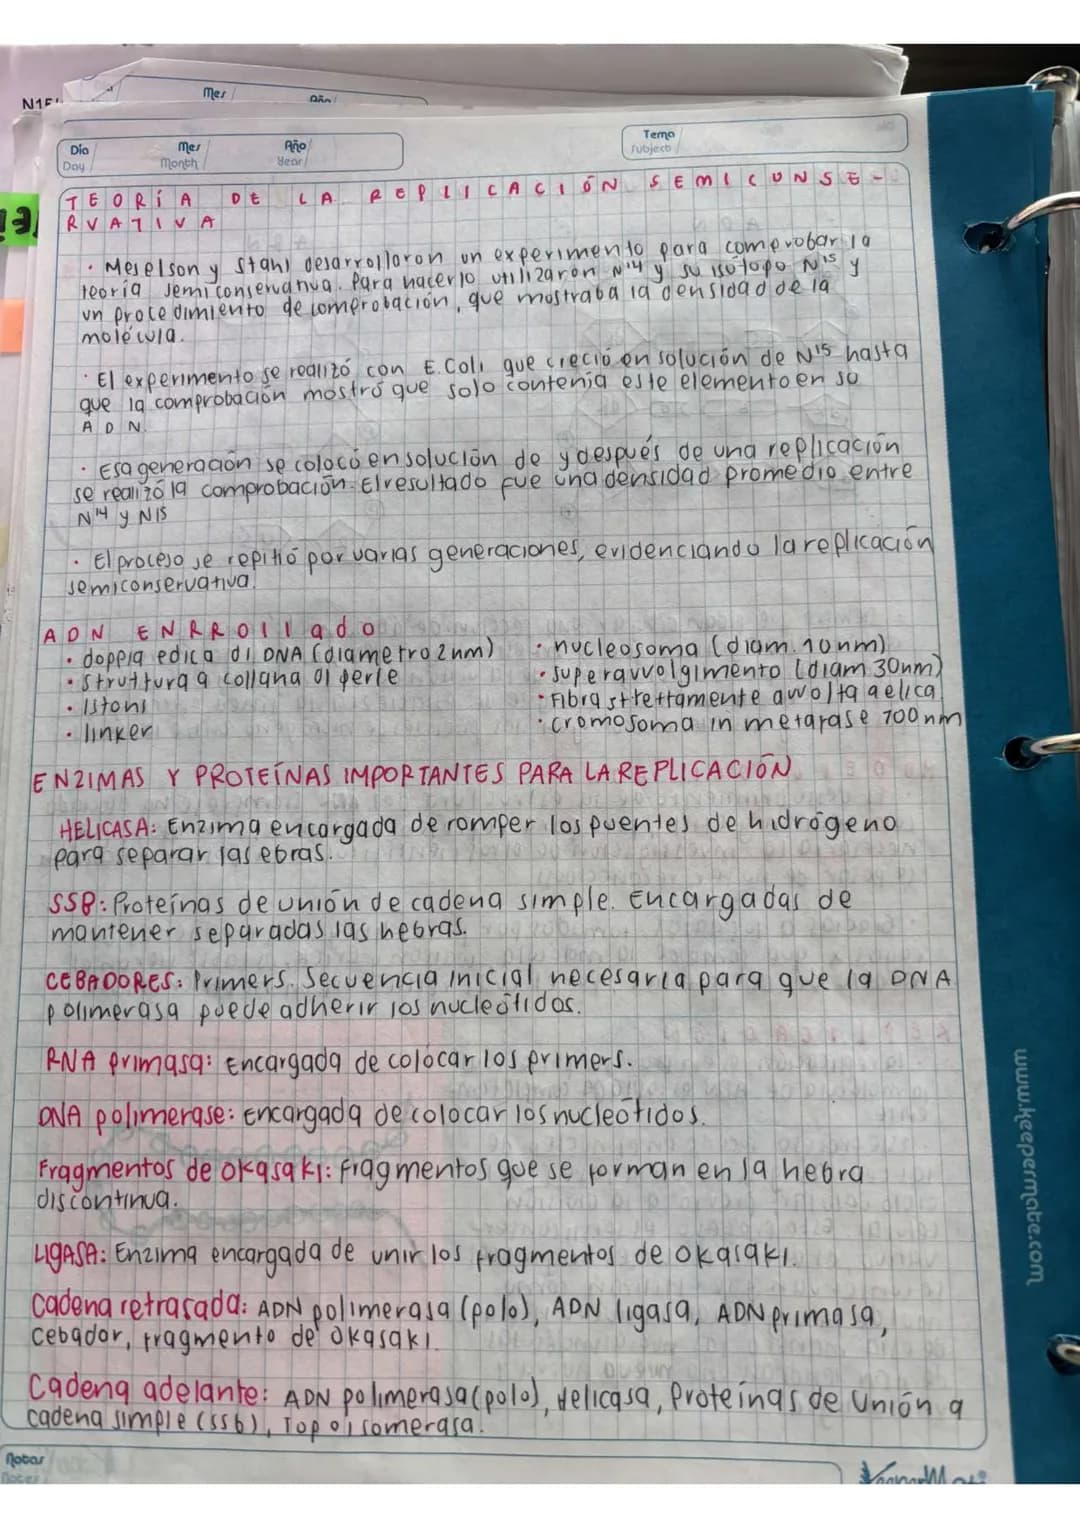 N15
Mes
Año
Día
Day
Mes
Month
Año
Year
Tema
Subject
TEORÍA DE LA REPLICACIÓN SEMICONSE-
RVATIVA
· Meselson y Stahl desarrollaron un experimento para comprobar la
teoría semiconservativa. Para hacerlo utilizaron N14 y su isótopo N15 y
un procedimiento de comprobación, que mostraba la densidad de la
molécula.
· El experimento se realizó con E.Coli que creció en solución de N15 hasta
que la comprobación mostró que solo contenía este elemento en su
ADN.
· Esa generación se colocó en solución de y después de una replicación
se realizó la comprobación. El resultado fue una densidad promedio entre
N14 y N15
· El proceso se repitió por varias generaciones, evidenciando la replicación
semiconservativa.
ADN ENRROllado
· doppia edica di DNA (diametro 2nm)
· struttura a collana di perle
· Istoni
· linker
· nucleosoma (diam. 10nm)
· superavvolgimento (diam 30nm)
· Fibra strettamente avvolta a elica
· cromosoma in metafase 700nm
ENZIMAS Y PROTEÍNAS IMPORTANTES PARA LA REPLICACIÓN
HELICASA: Enzima encargada de romper los puentes de hidrógeno
para separar las ebras.
SSB: Proteínas de unión de cadena simple. Encargadas de
mantener separadas las hebras.
CEBADORES: Primers. Secuencia inicial necesaria para que la DNA
polimerasa puede adherir los nucleótidos.
RNA primasa: Encargada de colocar los primers.
DNA polimerase: Encargada de colocar los nucleótidos.
Fragmentos de okasaki: fragmentos que se forman en la hebra
discontinua.
LIGASA: Enzima encargada de unir los fragmentos de okasaki.
Cadena retrasada: ADN polimerasa (polo), ADN ligasa, ADN primasa,
cebador, fragmento de Okasaki.
Cadena adelante: ADN polimerasa (polo), Helicasa, Proteínas de Unión a
cadena simple (ssb), Topoisomerasa.
Notas
Notes
www.keepermate.com